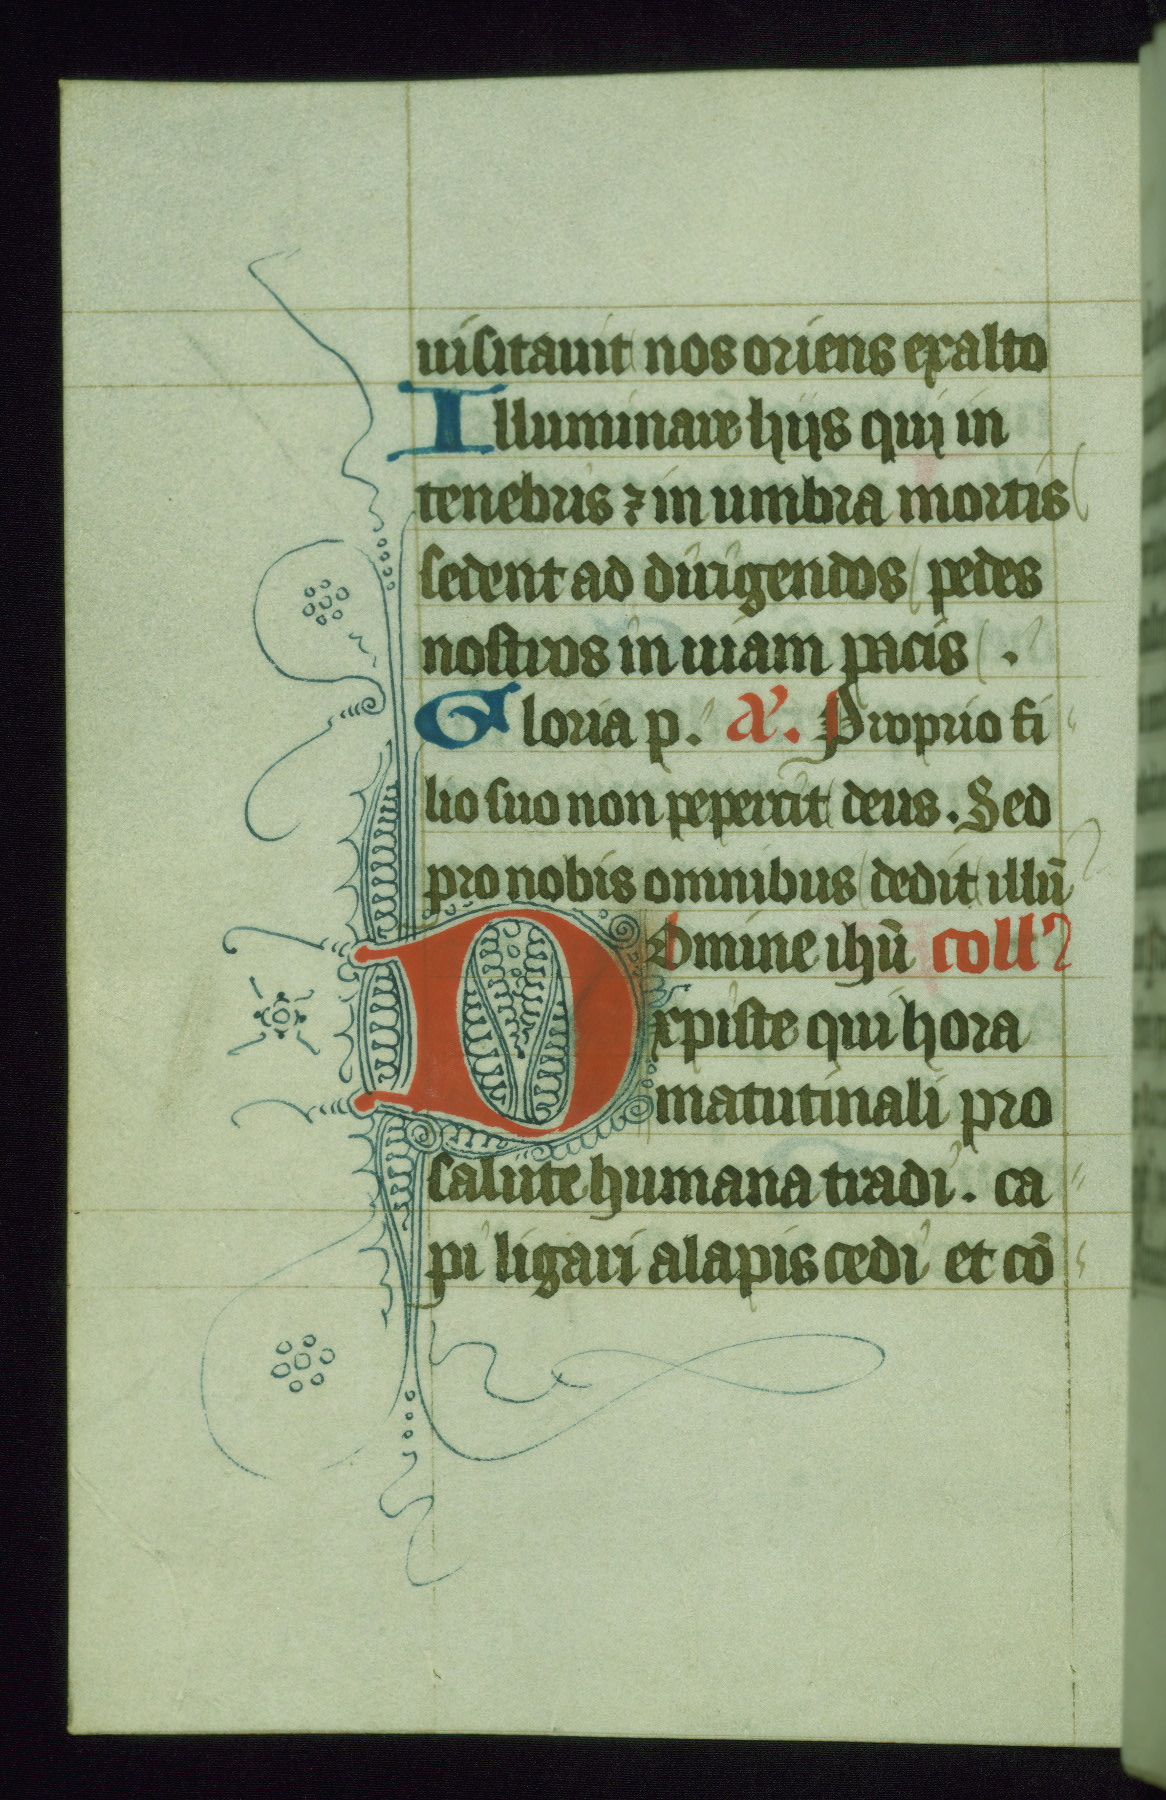 uisitauit nos oriens exalto
Illuminare hijs qui in
tenebris ⁊ in umbra mortis
sedent ad dirigendos pedes
nostros in uiam pacis .
Gloria p. Proprio fi
lio suo non pepercit deus. Sed
pro nobis omnibus dedit illū
Domine ihū coll'
xpiste qui hora
matutinali pro
salute humana tradi. ca
pi ligari alapis cedi et cō